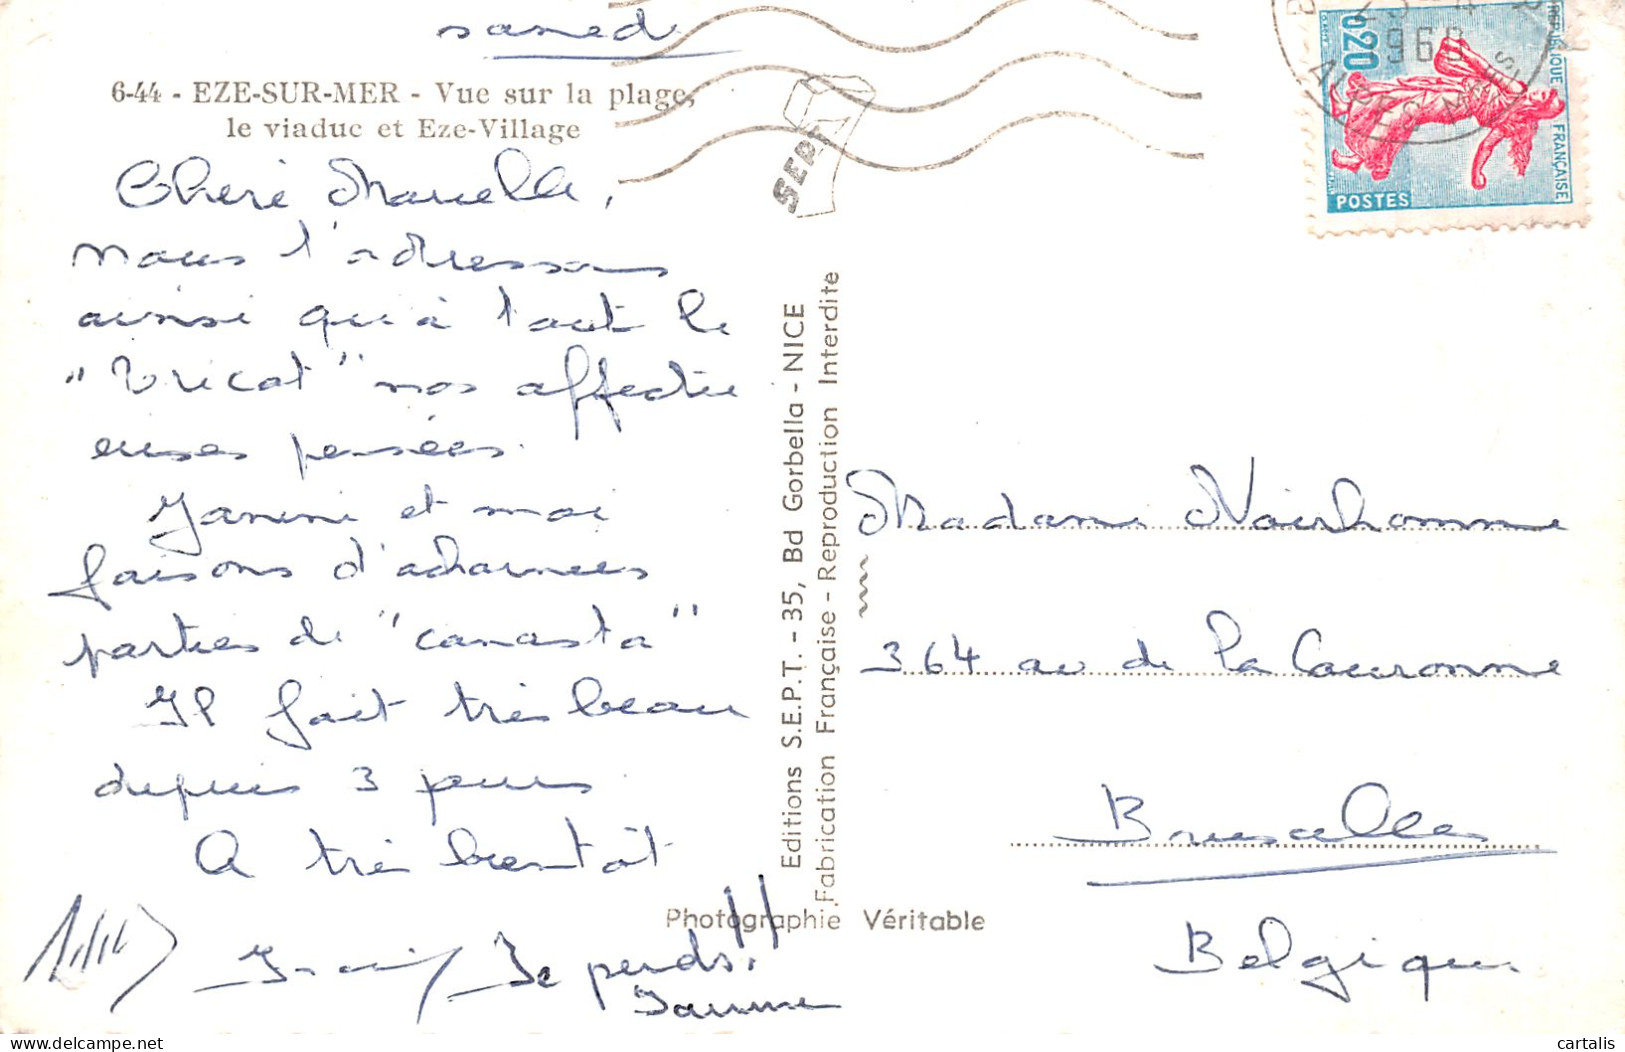 samedi
6-44 - EZE-SUR-MER - Vue sur la plage,
le viaduc et Eze-Village
SEPT
Chère Marcelle,
nous t'adressons
ainsi qu'à tout le
"Tricot" nos affectu
euses pensées.
Janine et moi
faisons d'acharnées
parties de "canasta"
Il fait très beau
depuis 3 jours
A très bientôt
Je perds!!
Janine
Editions S.E.P.T. - 35, Bd Gorbella - NICE
Fabrication Française - Reproduction Interdite
Photographie Véritable
REPUBLIQUE FRANÇAISE
0,20
POSTES
ALPES MMES
Madame Noirhomme
364 av de la Couronne
Bruxelles
Belgique
cartalis